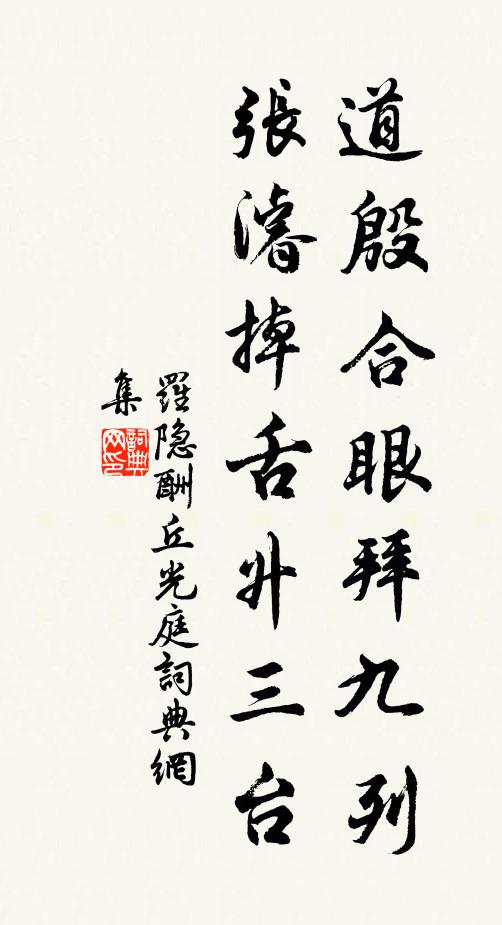 道殷合眼拜九列
張濬掉舌升三台
羅隐酬丘光庭詞典網
集
詞典网印